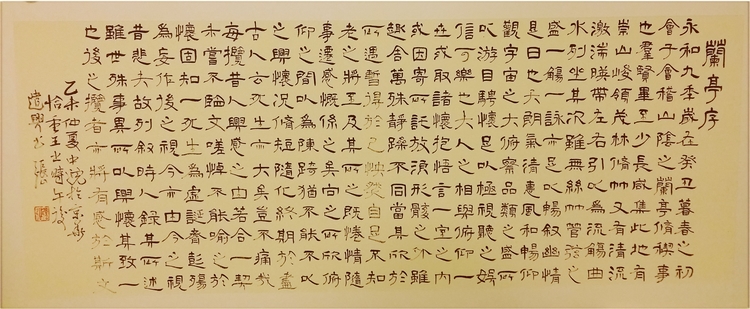 蘭亭序
永和九年歲在癸丑暮春之初
會于會稽山陰之蘭亭脩稧事
也羣賢畢至少長咸集此地有
崇山峻領茂林脩竹又有清流
激湍暎帶左右引以為流觴曲
水列坐其次雖無絲竹管弦之
盛一觴一詠亦足以暢敘幽情
是日也天朗氣清惠風和暢仰
觀宇宙之大俯察品類之盛所
以游目騁懷足以極視聽之娛
信可樂也夫人之相與俯仰一
世或取諸懷抱悟言一室之內
或因寄所託放浪形骸之外雖
趣舍萬殊靜躁不同當其欣於
所遇暫得於己怏然自足不知
老之將至及其所之既惓情隨
事遷感慨係之矣向之所欣俯
仰之間以為陳跡猶不能不以
之興懷況脩短隨化終期於盡
古人云死生亦大矣豈不痛哉
每攬昔人興感之由若合一契
未嘗不臨文嗟悼不能喻之於
懷固知一死生為虛誕齊彭殤
為妄作後之視今亦由今之視
昔悲夫故列敘時人錄其所述
雖世殊事異所以興懷其致一
也後之攬者亦將有感於斯文
乙未仲夏中浣於京華